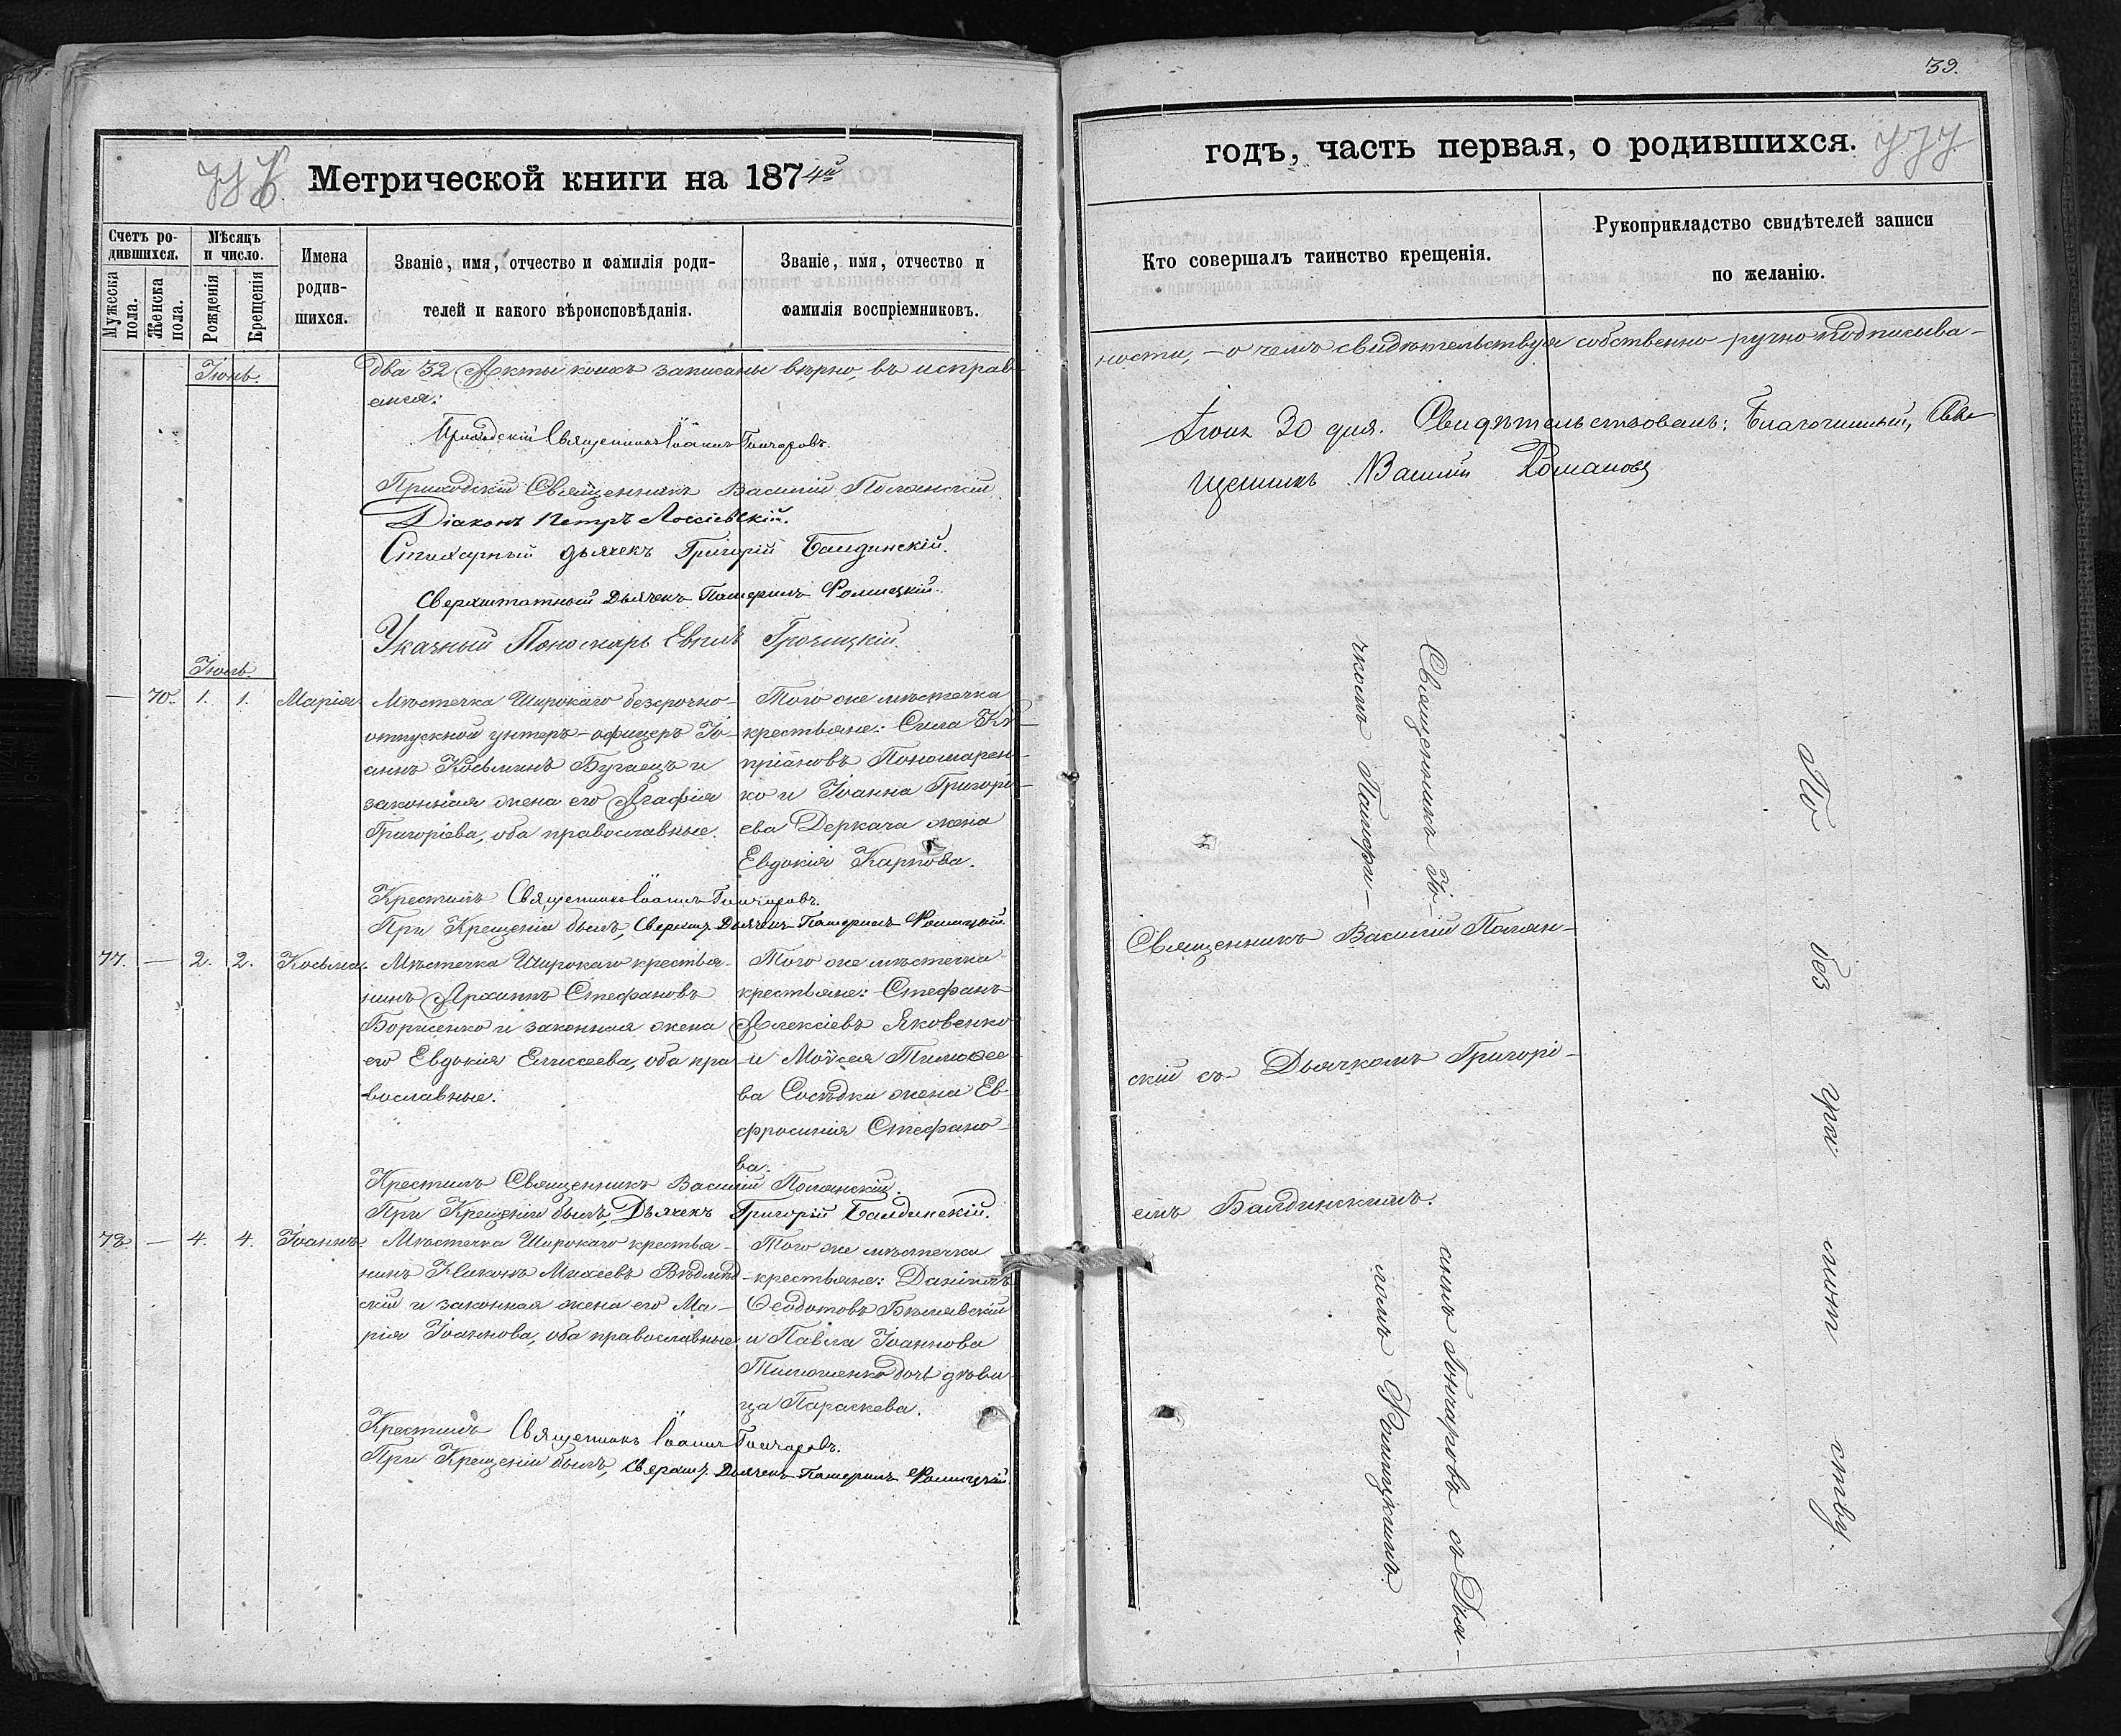 Метрической книги на 1874й
Счетъ ро-
дившихся.
Мужеска
пола.
Женска
пола.
Мѣсяцъ
и число.
Рожденія
Крещенія
Имена
родив-
шихся.
Званіе, имя, отчество и фамилія роди-
телей и какого вѣроисповѣданія.
Званіе, имя, отчество и
фамилія воспріемниковъ.
Іюнь.
два 52 Акты коихъ записаны вѣрно, въ исправ-
Приходскій Священникъ Іоаннъ Гончаровъ.
Приходскій Священникъ Василій Полянскій
Діаконъ Петръ
Стихарный дьячекъ Григорій Балдинскій.
Сверхштатный Дьячекъ
Указный Пономарь
Іюль.
— 70. 1. 1. Марія
Мѣстечка Широкаго безсрочно-
отпускной унтеръ-офицеръ Іо-
аннъ Косьминъ Бугаецъ и
законная жена его Агафія
Григоріева, оба православные.
Того же мѣстечка
крестьяне: Сила Ку-
пріановъ Пономарен-
ко и Іоанна Григорі-
ева Деркача жена
Евдокія Карпова.
Крестилъ Священникъ Іоаннъ Гончаровъ.
При Крещеніи былъ, Сверхш. Дьячекъ
77. — 2. 2. Косьма.
Мѣстечка Широкаго крестья-
нинъ Архиппъ Стефановъ
Борисенко и законная жена
его Евдокія Елисеева, оба пра-
вославные.
Того же мѣстечка
крестьяне: Стефанъ
Алексіевъ Яковенко
и Моѵсея Тимоѳее-
ва Сосѣдки жена Ев-
фросинія Стефано-
ва.
Крестилъ Священникъ Василій Полянскій.
При Крещеніи былъ, Дьячекъ Григорій Балдинскій.
78. — 4. 4. Іоаннъ.
Мѣстечка Широкаго крестья-
нинъ Никонъ Михеевъ
скій и законная жена его Ма-
рія Іоаннова, оба православные
Того же мѣстечка
крестьяне: Даніилъ
Ѳеодотовъ Бѣлявскій
и Павла Іоаннова
Тимошенко дочь дѣви-
ца Параскева.
Крестилъ Священникъ Іоаннъ Гончаровъ.
При Крещеніи былъ, Сверхш. Дьячекъ
39.
годъ, часть первая, о родившихся. 777
Кто совершалъ таинство крещенія.
Рукоприкладство свидѣтелей записи
по желанію.
ности, - о чемъ свидѣтельствуя собственно-ручно подписыва-
емся:
Іюля 30 дня. Свидѣтельствовалъ: Благочинный, Свя-
щенникъ Василій Романовъ
Священникъ Іо-
аннъ Гончаровъ съ Дья-
чкомъ
Священникъ Василій Полян-
скій съ Дьячкомъ Григорі-
емъ Балдинскимъ.
По без гра мотн